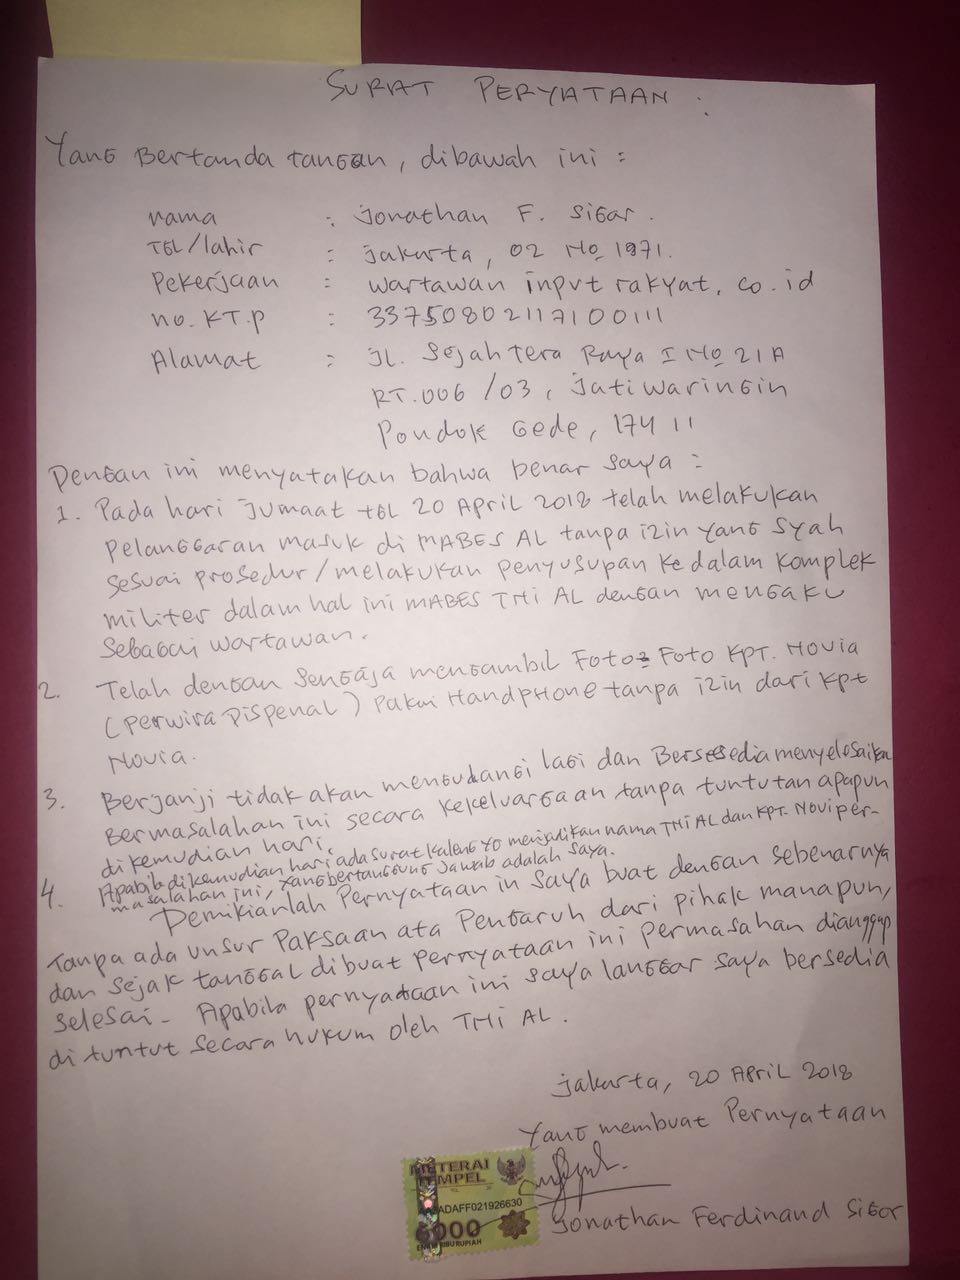 SURAT PERYATAAN.
Yang Bertanda tangan, dibawah ini :
nama : Jonathan F. Sigar.
TGL/lahir : Jakarta, 02 No 1971.
Pekerjaan : wartawan input rakyat. co.id
no. KT.P : 3375080211710011
Alamat : JL. Sejahtera Raya I No 21A
RT.006 /03, Jatiwaringin
Pondok Gede, 17411
Dengan ini menyatakan bahwa benar saya :
1. Pada hari Jumaat tgl 20 April 2018 telah melakukan
pelanggaran masuk di MABES AL tanpa izin yang syah
sesuai prosedur/melakukan penyusupan kedalam komplek
militer dalam hal ini MABES TNi AL dengan mengaku
sebagai wartawan.
2. Telah dengan sengaja mengambil Foto2 Foto KPT. Novia
(Perwira Dispenal) Pakai HandPHone tanpa izin dari Kpt
Novia.
3. Berjanji tidak akan mengulangi lagi dan Bersesedia menyelesaikan
Bermasalahan ini secara kekeluargaan tanpa tuntutan apapun
dikemudian hari.
4. Apabila dikemudian hari ada surat kaleng yg menjadikan nama TNi AL dan KPT. Novi per-
masalahan ini, yang bertanggung jawab adalah saya.
Demikianlah Pernyataan in saya buat dengan sebenarnya
Tanpa ada unsur Paksaan ata Pengaruh dari pihak manapun,
dan sejak tanggal dibuat pernyataan ini permasahan dianggap
selesai. Apabila pernyataan ini saya langgar saya bersedia
di tuntut secara hukum oleh TNi AL.
Jakarta, 20 April 2018
Yang membuat Pernyataan
METERAI
TEMPEL
ADAFF021926630
6000
ENAM RIBU RUPIAH
Jonathan Ferdinand Sigar